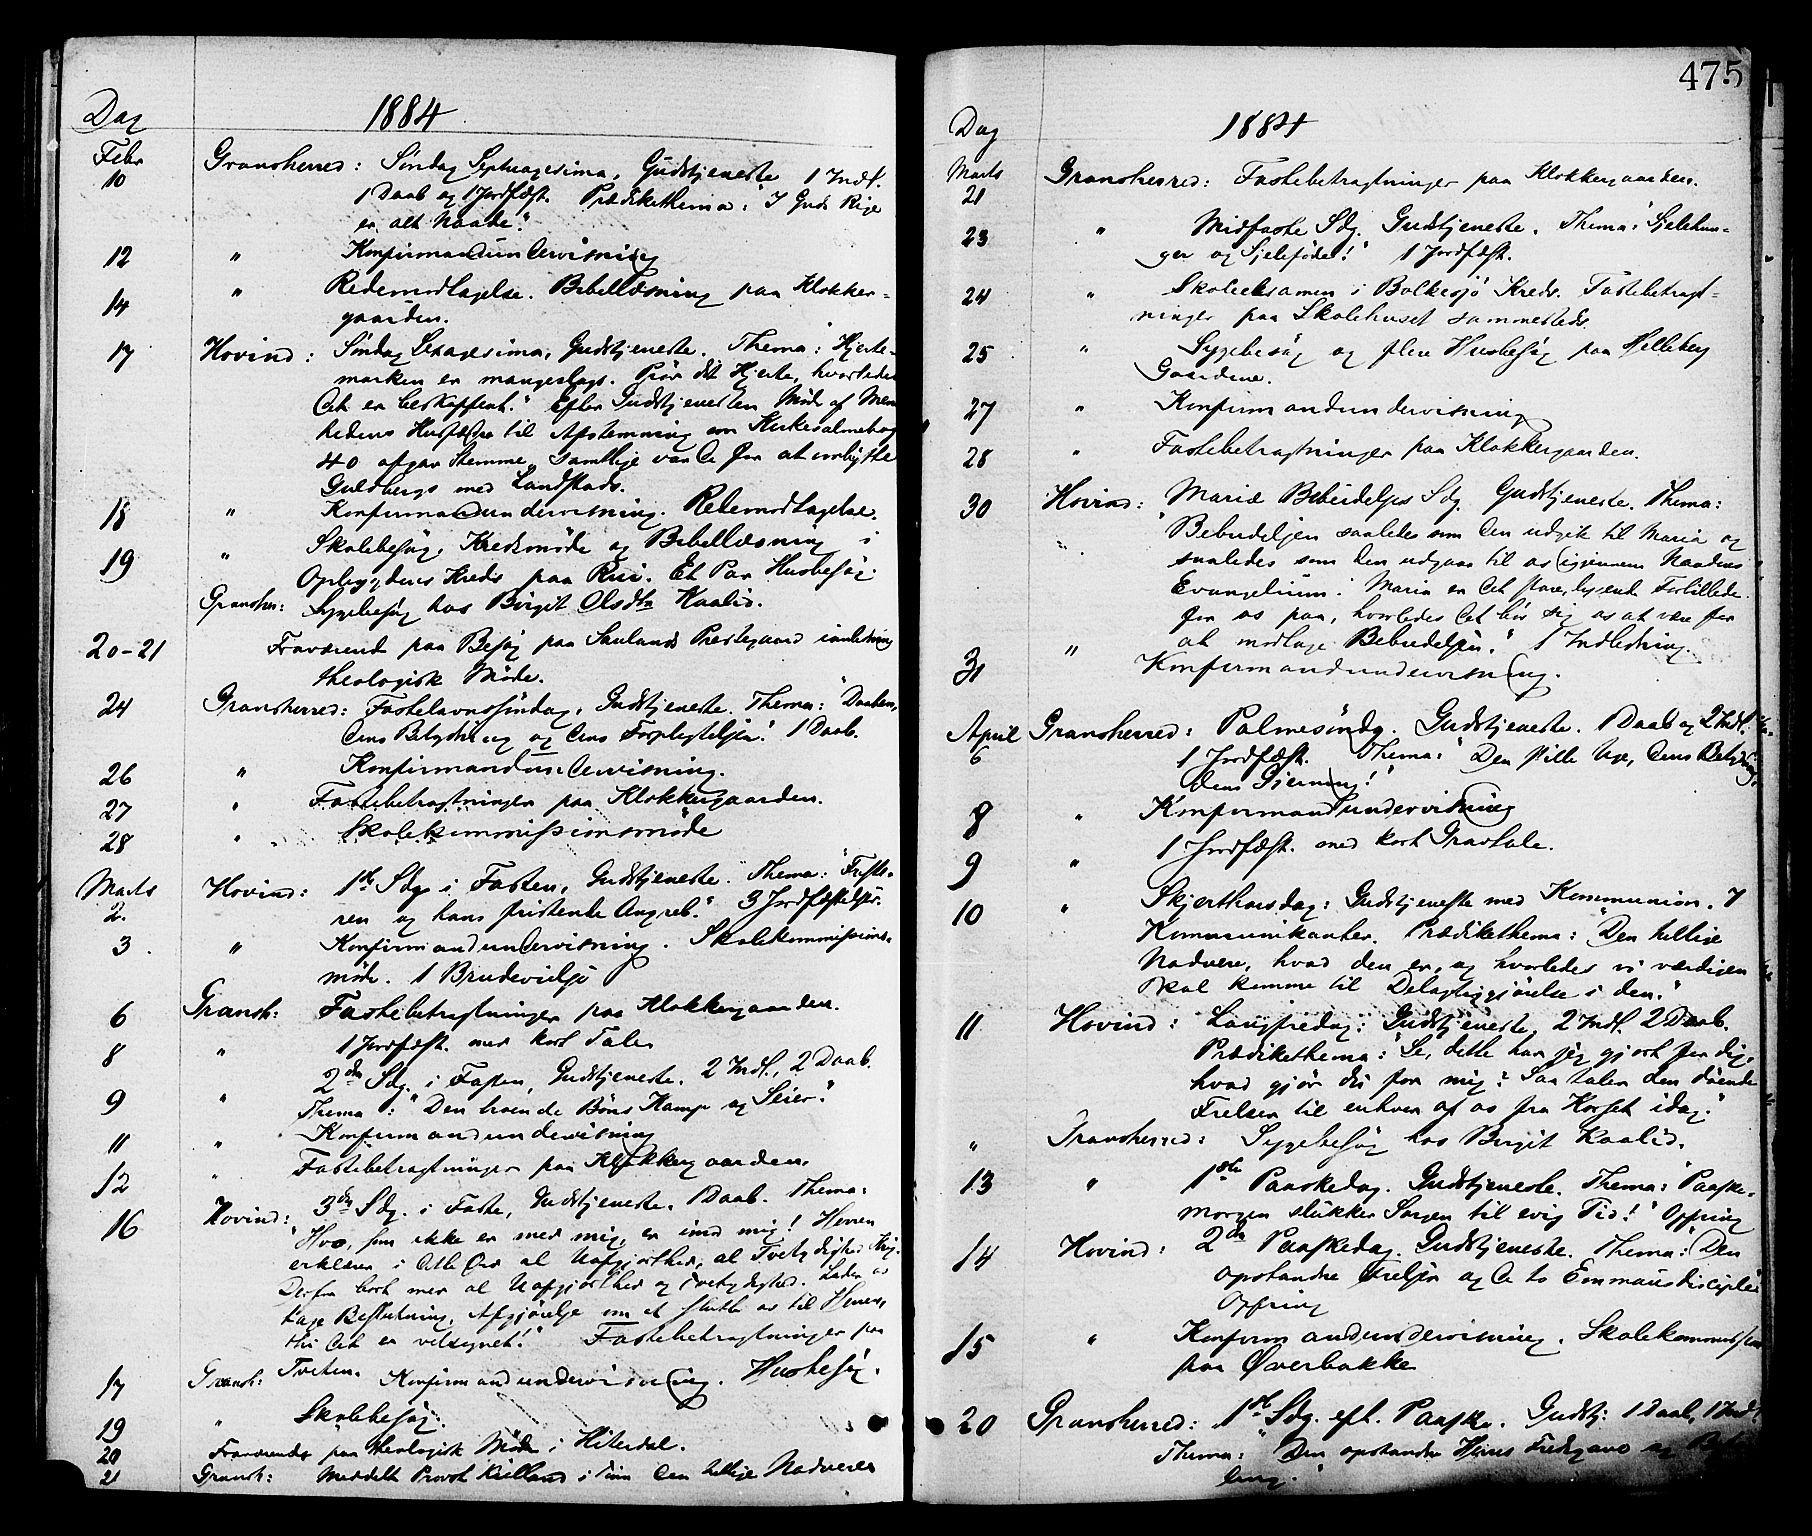 Dag 1884
Febr
10 Gransherred: Søndag Septuagesima, Gudstjeneste 1 Indl.
1 Daab og 1 Jordfæst. Prædikethema: "I Guds Rige
er alt Naade."
12 " Konfirmandundervisning
14 " Redemodtagelse. Bibellæsning paa Klokker-
gaarden.
17 Hovind: Søndag Sexagesima, Gudstjeneste. Thema: "Hjerte-
marken er mangeslags. Prøv dit Hjerte, hvorledes
det er beskaffent." Efter Gudstjenesten Møde af Menig
hedens Husfædre til Afstemning om Kirkesalmebog
40 afgav Stemme, samtlige var de for at ombytte
Guldbergs med Landstads.
18 " Konfirmandundervisning. Redemodtagelse.
19 " Skolebesøg, Kredsmøde og Bibellæsning i
Opbygdens Kreds paa Rui. Et Par Husbesøg.
Gransher: Sygebesøg hos Birgit Olsdtr Kaalid.
20-21 Fraværende paa Besøg paa Saulands Prestegaard i anledning
theologisk Møde.
24 Gransherred: Fastelavnssøndag, Gudstjeneste. Thema: "Daaben,
dens Betydning og dens Forpligtelser." 1 Daab.
26 " Konfirmandundervisning.
27 " Fastebetragtninger paa Klokkergaarden.
28 " Skolekommissionsmøde
Marts
2. Hovind: 1ste Sdg i Fasten, Gudstjeneste. Thema: "Friste-
ren og hans fristende Angreb." 3 Jordfæstelser.
3 " Konfirmandundervisning. Skolekommissions-
møde. 1 Brudevielse
6 Gransh: Fastebetragtninger paa Klokkergaarden.
8 " 1 Jordfæst. med kort Tale
9 " 2den Sdg. i Fasten, Gudstjeneste. 2 Indl., 2 Daab.
Thema: "Den troende Bøns Kamp og Seier."
11 " Konfirmandundervisning
12 " Fastebetragtninger paa Klokkergaarden.
16 Hovind: 3die Sdg. i Faste, Gudstjeneste. 1 Daab. Thema:
"Hvo, som ikke er med mig, er imod mig! Herren
erklærer i dette Ord al Uafgjorthed, al Tvetydighed Krig.
Derfor bort med al Uafgjorthed og Tvetydighed. Lader os
tage Beslutning, Afgjørelse om at slutte os til Herren,
thi det er velsignet!" Fastebetragtninger paa
Tveten.
17 Gransh: Konfirmandundervisning. Husbesøg.
19 " Skolebesøg.
20 Fraværende paa theologisk Møde i Hiterdal.
21 Gransh: Meddelt Provst Kielland i Tinn den hellige Nadvere
475
Dag 1884
Marts
21 Gransherred: Fastebetragtninger paa Klokkergaarden.
23 " Midfaste Sdg. Gudstjeneste. Thema: "Sjelehun-
ger og Sjeleføde!" 1 Jordfæst.
24 " Skoleeksamen i Bolkesjø Kreds. Fastebetragt-
ninger paa Skolehuset sammesteds.
25 " Sygebesøg og flere Husbesøg paa Helleberg
Gaardene.
27 " Konfirmandundervisning
28 " Fastebetragtninger paa Klokkergaarden.
30 Hovind: Mariæ Bebudelses Sdg. Gudstjeneste. Thema:
"Bebudelsen saaledes som den udgik til Maria og
saaledes som den udgaar til os igjennem Naadens
Evangelium. Maria er det store, lysende Forbillede
for os paa, hvorledes det bør sig os at være for
at modtage Bebudelsen." 1 Indledning.
31 " Konfirmandundervisning.
April
6 Gransherred: Palmesøndg. Gudstjeneste. 1 Daab og 2 Indl.
1 Jordfæst. Thema: "Den stille Uge, dens Betydning,
dens Gjerning!"
8 " Konfirmandundervisning
9 " 1 Jordfæst. med kort Gravtale.
10 " Skjerthorsdag: Gudstjeneste med Kommunion. 7
Kommunikanter. Prædikethema: "Den hellige
Nadvere, hvad den er, og hvorledes vi værdigen
skal komme til Delagtiggjørelse i den."
11 Hovind: Langfredag: Gudstjeneste, 2 Indl. 2 Daab.
Prædikethema: "Se, dette har jeg gjort for dig,
hvad gjør du for mig? Saa taler den døende
Frelser til enhver af os fra Korset idag."
" Gransherred: Sygebesøg hos Birgit Kaalid.
13 " 1ste Paaskedag. Gudstjeneste. Thema: "Paaske-
morgen slukker Sorgen til evig Tid!" Ofring
14 Hovind: 2den Paaskedag. Gudstjeneste. Thema: "Den
opstandne Frelser og de to Emmausdisciple"
Ofring
15 " Konfirmandundervisning. Skolekommission
paa Øverbakke
20 Gransherred: 1ste Sdg. eft. Paaske. Gudstj: 1 Daab, 1 Indl
Thema: "Den opstandne Herres Fredsgave og